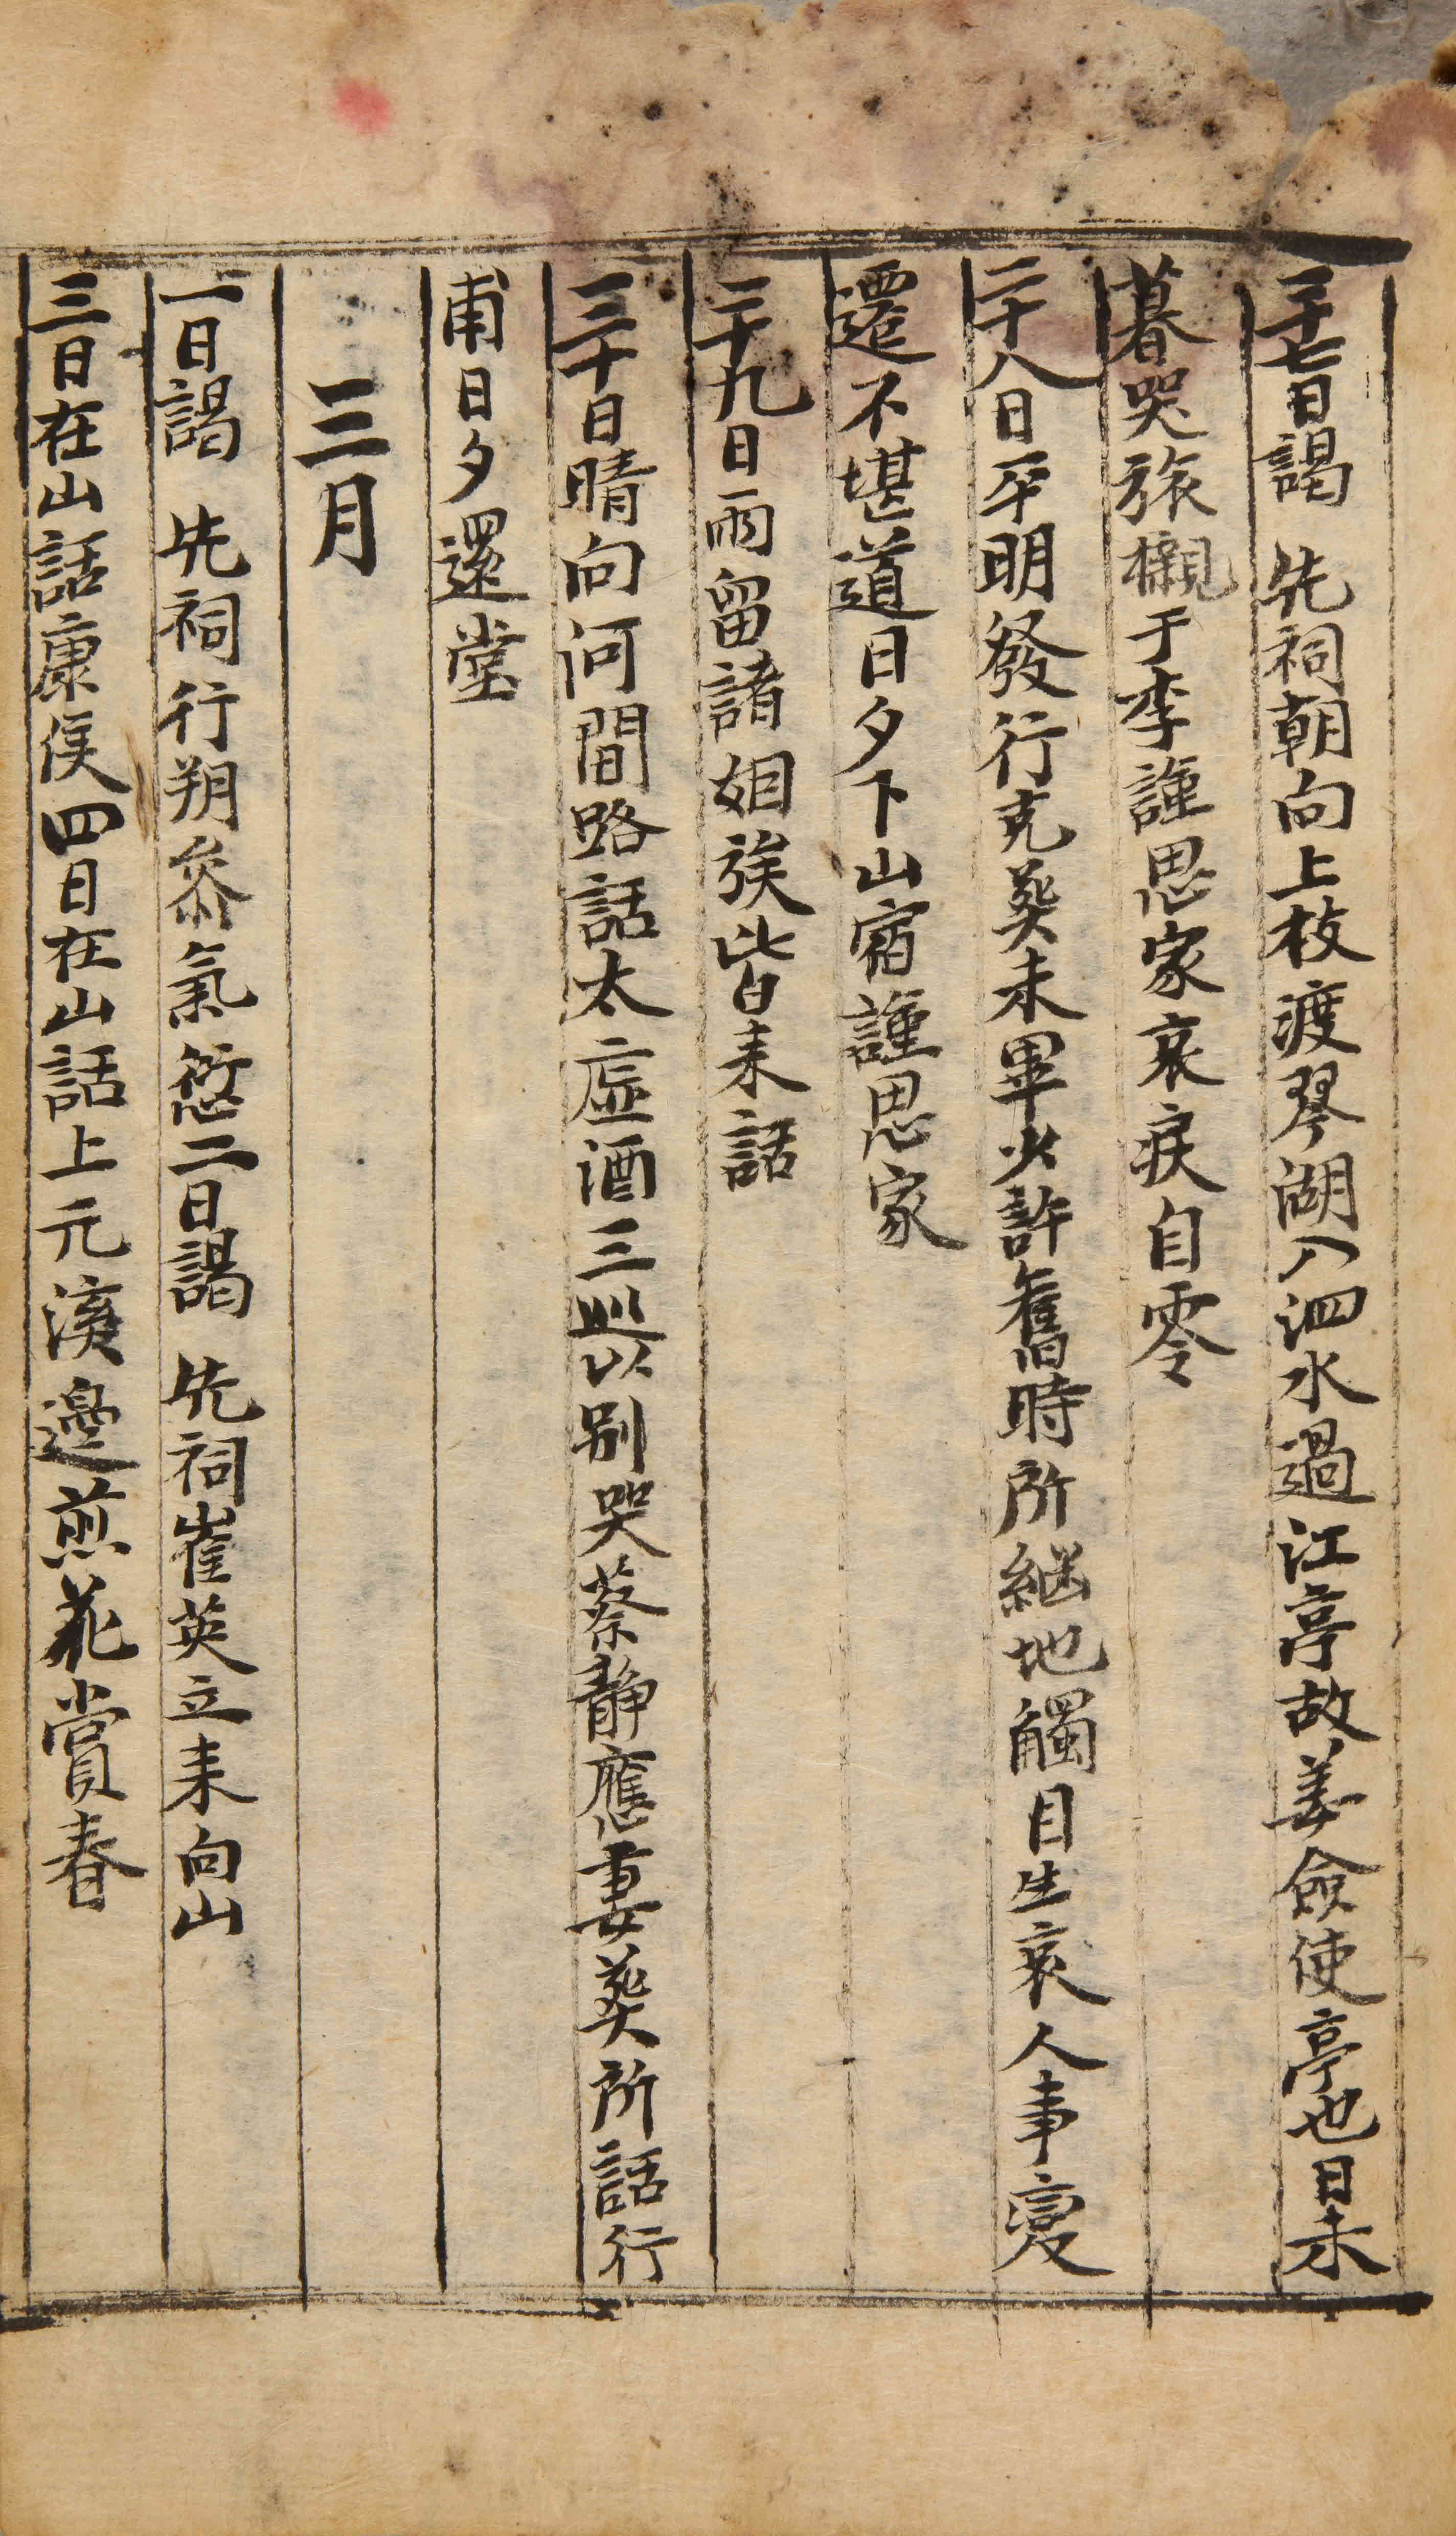 二十七日謁 先祠朝向上枝渡琴湖入泗水過江亭故姜僉使亭也日未
暮哭旅櫬于李謹思家哀淚自零
二十八日平明發行克葬未畢少許舊時所継地觸目生哀人事変
遷不堪道日夕下山宿謹思家
二十九日雨留諸姻族皆来話
三十日晴向河間路話太虛酒三以別哭蔡靜應妻葬所話行
甫日夕還堂
三月
一日謁 先祠行朔叅氣愆二日謁 先祠崔英立来向山
三日在山話康侯四日在山話上元濱邊煎花賞春